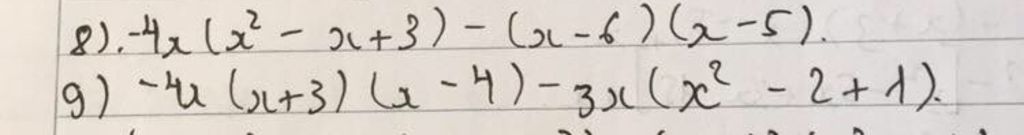 8). -4x(x² - x+3) - (x-6)(x-5).
9) -4x(x+3)(x-4)-3x(x² - 2+1).